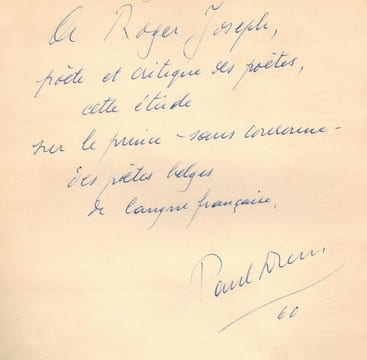 A Roger Joseph,
poète et critique des poètes,
cette étude
sur le prince - sans couronne -
des poètes belges
de langue française,
Paul
60